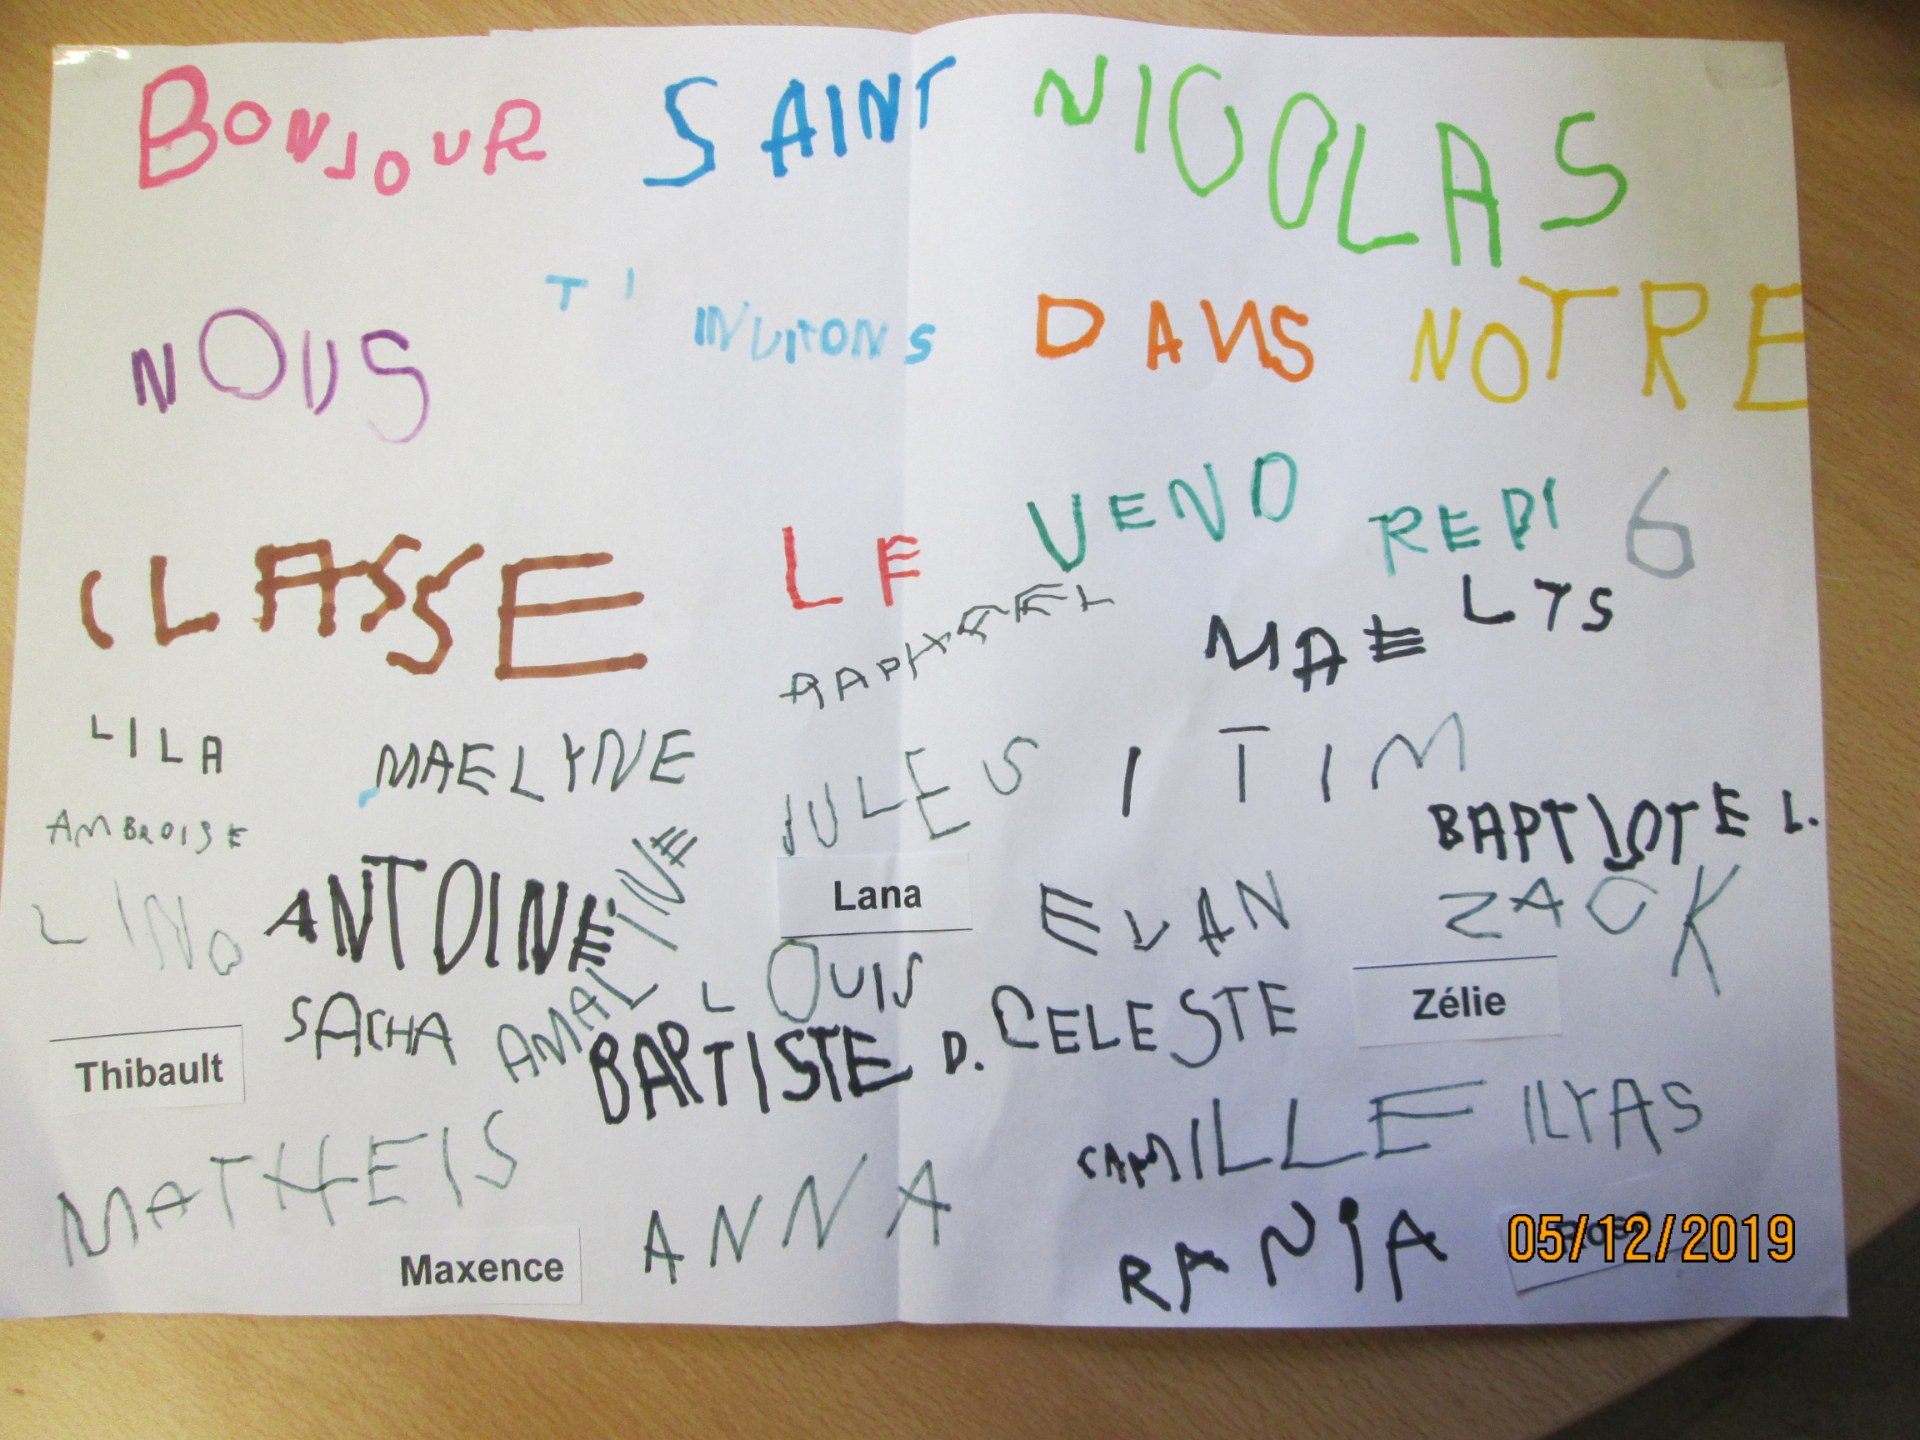 BONJOUR SAINT NICOLAS
NOUS T'INVITONS DANS NOTRE
CLASSE LE VENDREDI 6
RAPHAEL MAELYS
LILA MAELYNE JULES I TIM
AMBROISE BAPTISTE L.
LINO ANTOINE AMALINE Lana EVAN ZACK
SACHA LOUIS CELESTE Zélie
Thibault BAPTISTE D.
MATHEIS CAMILLE ILYAS
Maxence ANNA RANIA
05/12/2019